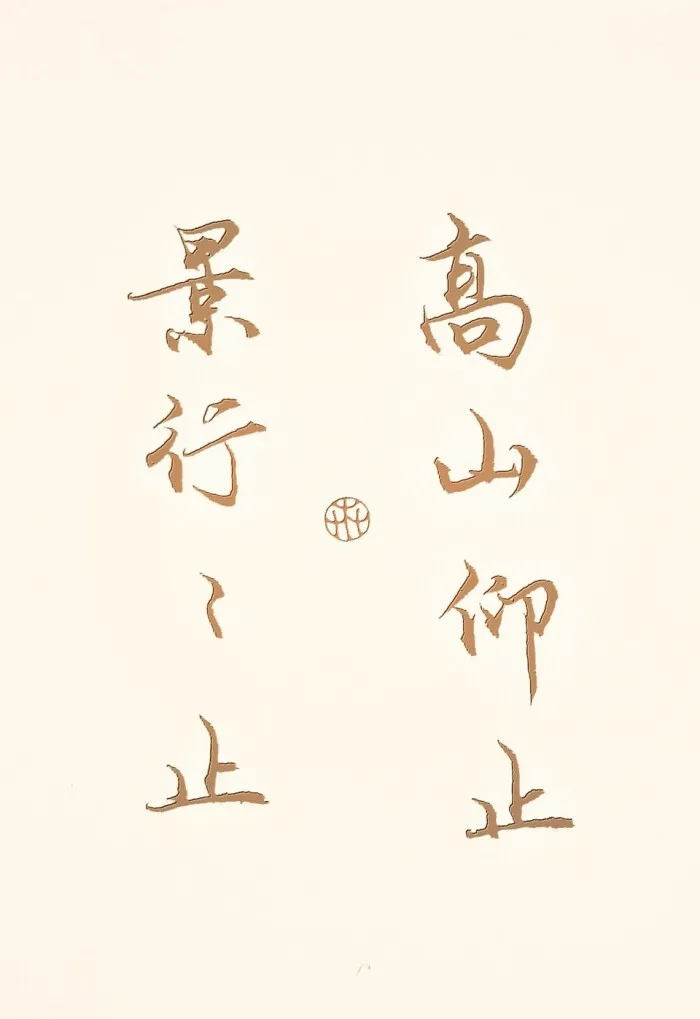 高山仰止
景行〻止